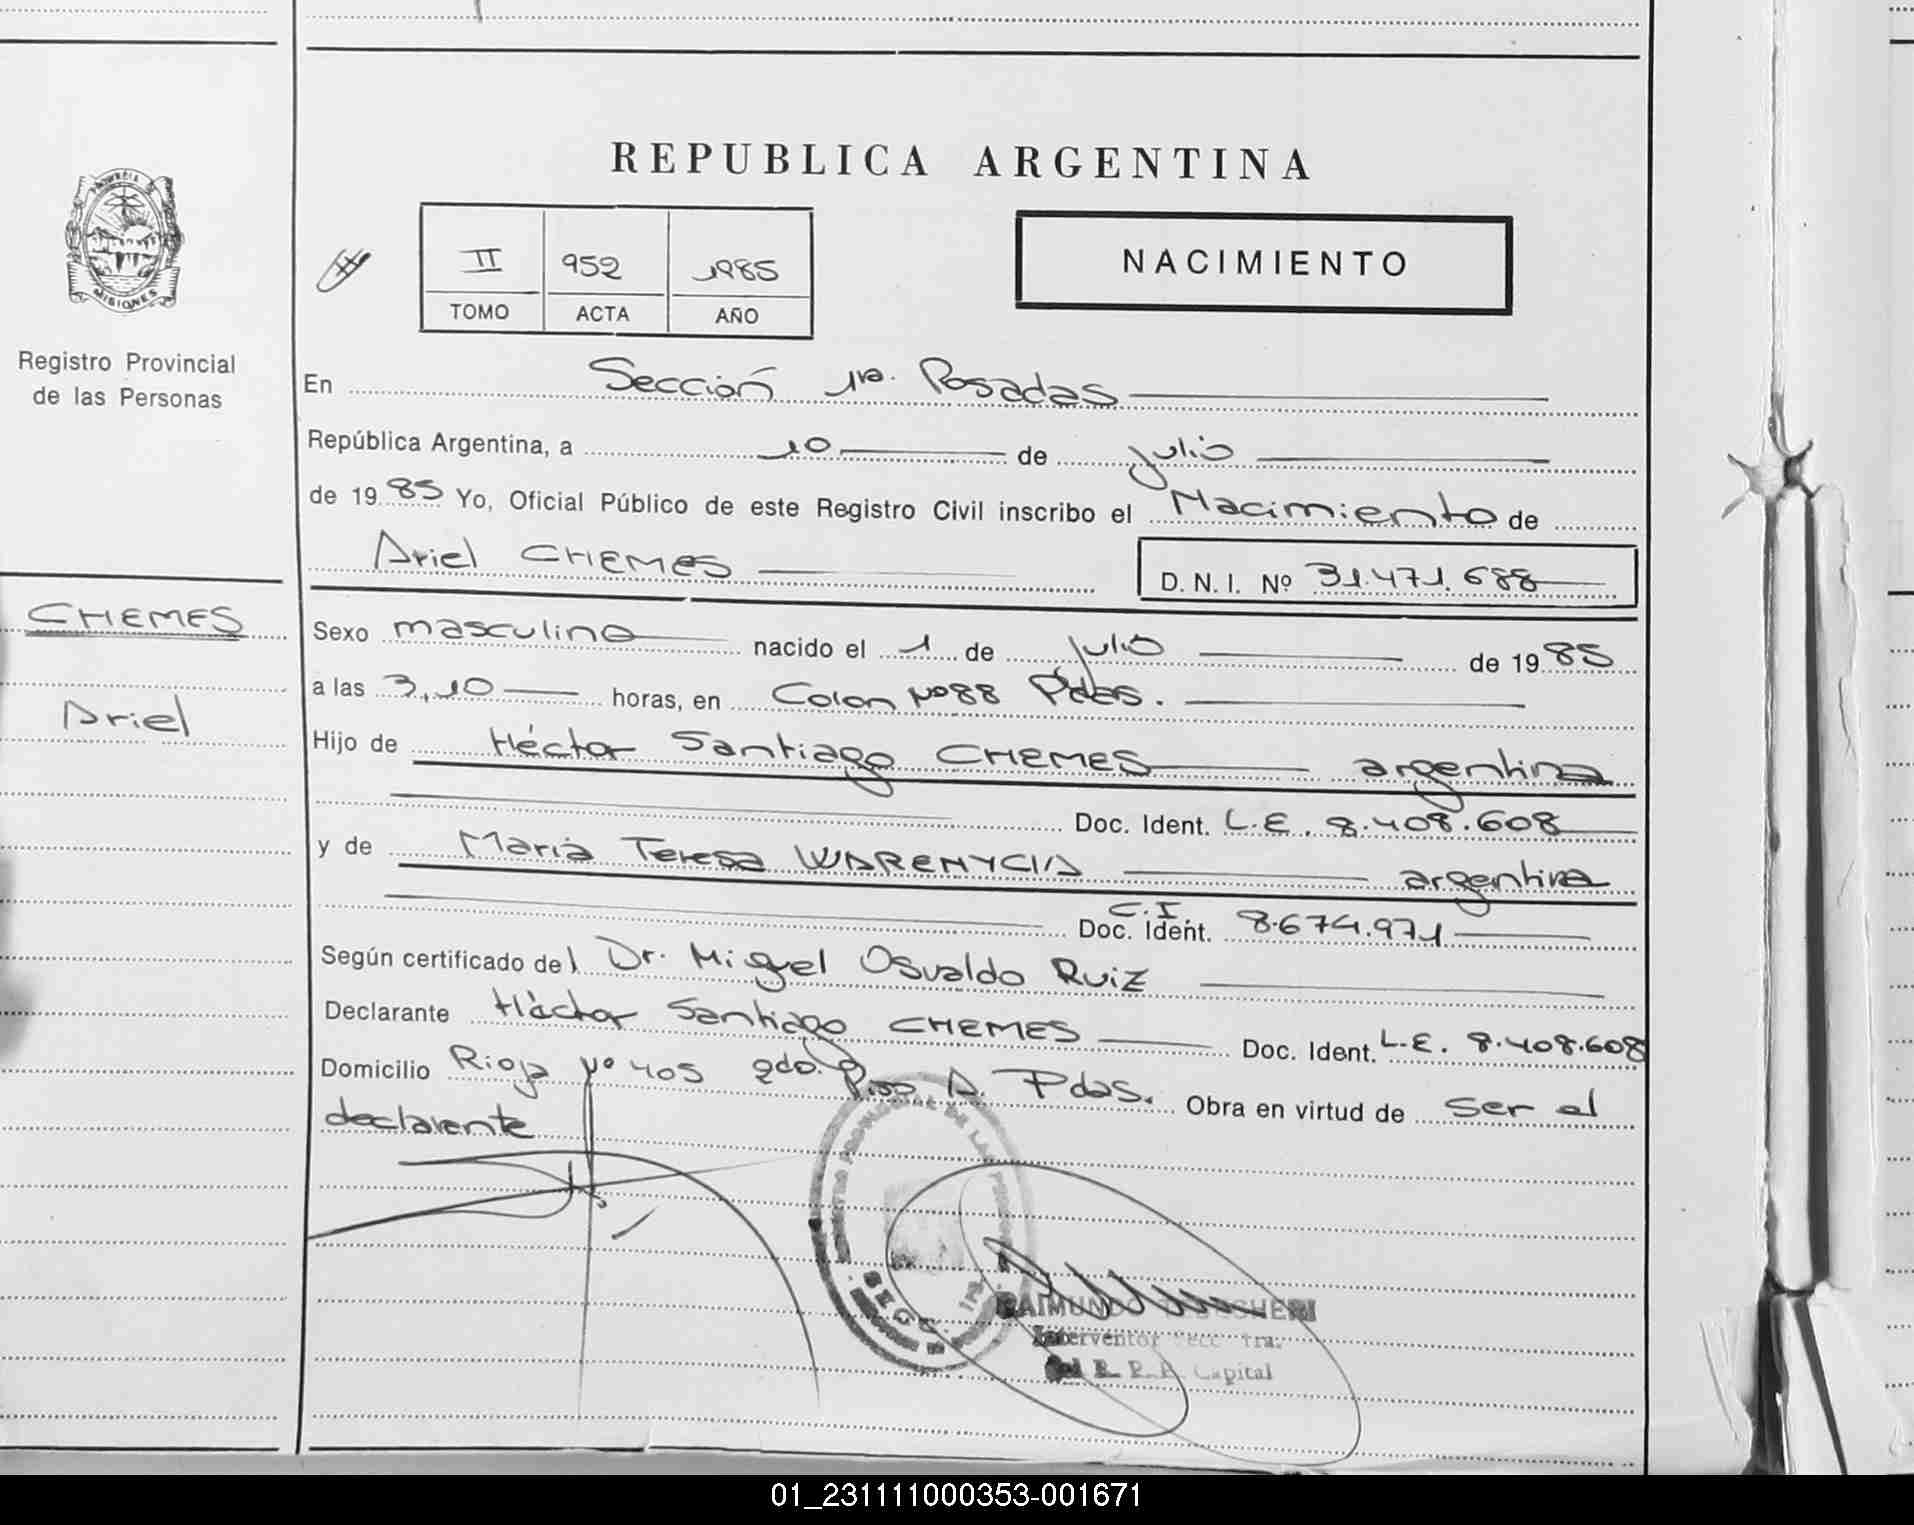 REPUBLICA ARGENTINA
PROVINCIA DE
MISIONES
Registro Provincial
de las Personas
CHEMES
Ariel
II 952 1985
TOMO ACTA AÑO
NACIMIENTO
En Sección 1ra. Posadas
República Argentina, a 10 de julio
de 1985 Yo, Oficial Público de este Registro Civil inscribo el Nacimiento de
Ariel CHEMES D.N.I. Nº 31.471.688
Sexo masculino nacido el 1 de julio de 1985
a las 3,10 horas, en Colon Nº88 Pdas.
Hijo de Héctor Santiago CHEMES argentina
Doc. Ident. L.E. 8.408.608
y de Maria Teresa WARENYCIA argentina
C.I.
Doc. Ident. 8.674.971
Según certificado del Dr. Miguel Osvaldo Ruiz
Declarante Héctor Santiago CHEMES Doc. Ident. L.E. 8.408.608
Domicilio Rioja Nº 405 2do. Piso A. Pdas. Obra en virtud de ser el
declarante
PROVINCIAL DE LAS
SECC 1ra
RAIMUNDO
Interventor Secc 1ra.
Capital
01_231111000353-001671